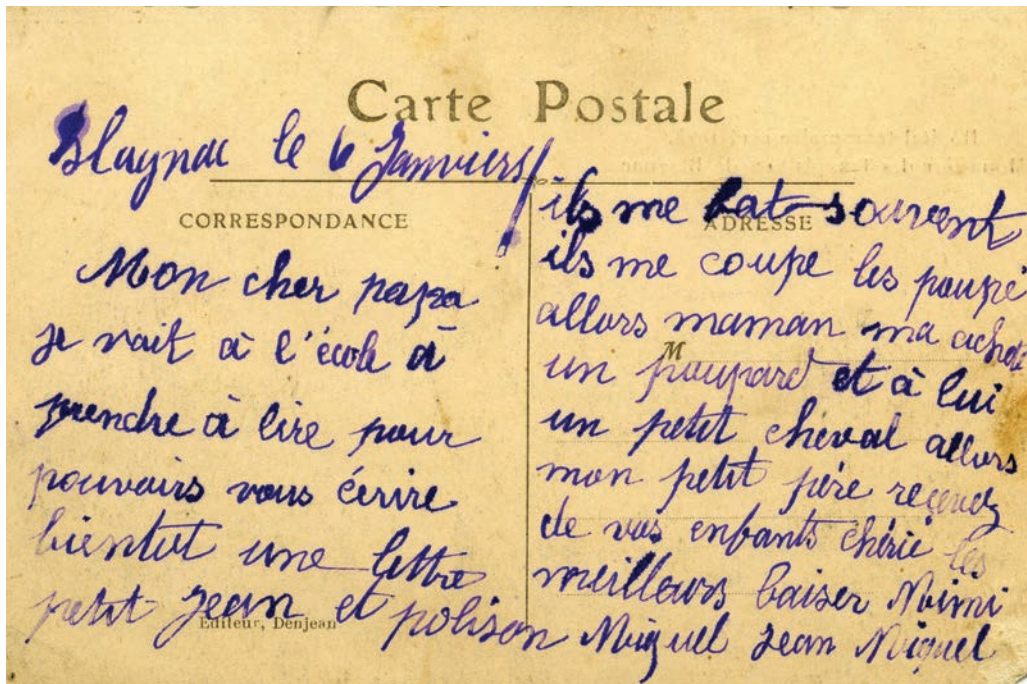 Carte Postale
Blagnac le 6 Janviers
CORRESPONDANCE
Mon cher papa
je vait à l'école à
prendre à lire pour
pouvairs vous écrire
bientot une lettre
petit Jean et polison
Editeur, Denjean
ADRESSE
ils me bat souvent
ils me coupe les poupé
allors maman ma acheté
M
un poupard et à lui
un petit cheval allors
mon petit père recevez
de vos enfants chérie les
meilleurs baiser Noimi
Miguel Jean Miquel